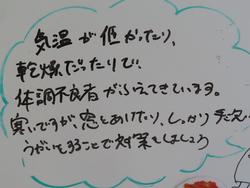 気温が低かったり、
乾燥だったりで、
体調不良者がふえてきています。
寒いですが、窓をあけたり、しっかり手洗い
うがいをすることで対策をしましょう